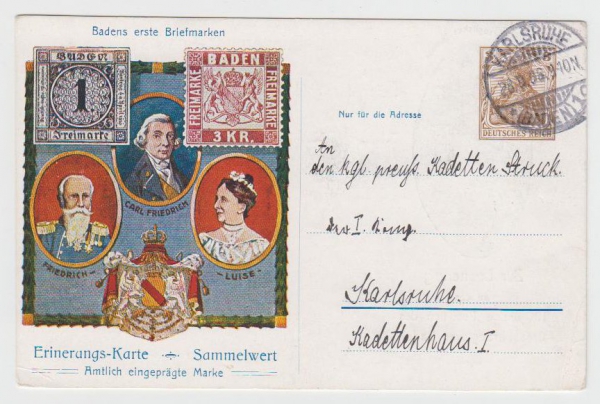 Badens erste Briefmarken
BADEN
1
Freimarke
BADEN
FREIMARKE
FREIMARKE
3 KR.
CARL FRIEDRICH
FRIEDRICH
LUISE
Erinerungs-Karte Sammelwert
Amtlich eingeprägte Marke
KARLSRUHE
DEUTSCHES REICH
Nur für die Adresse
An
den kgl preuss. Kadetten Struck.
der I.
Karlsruhe.
Kadettenhaus I